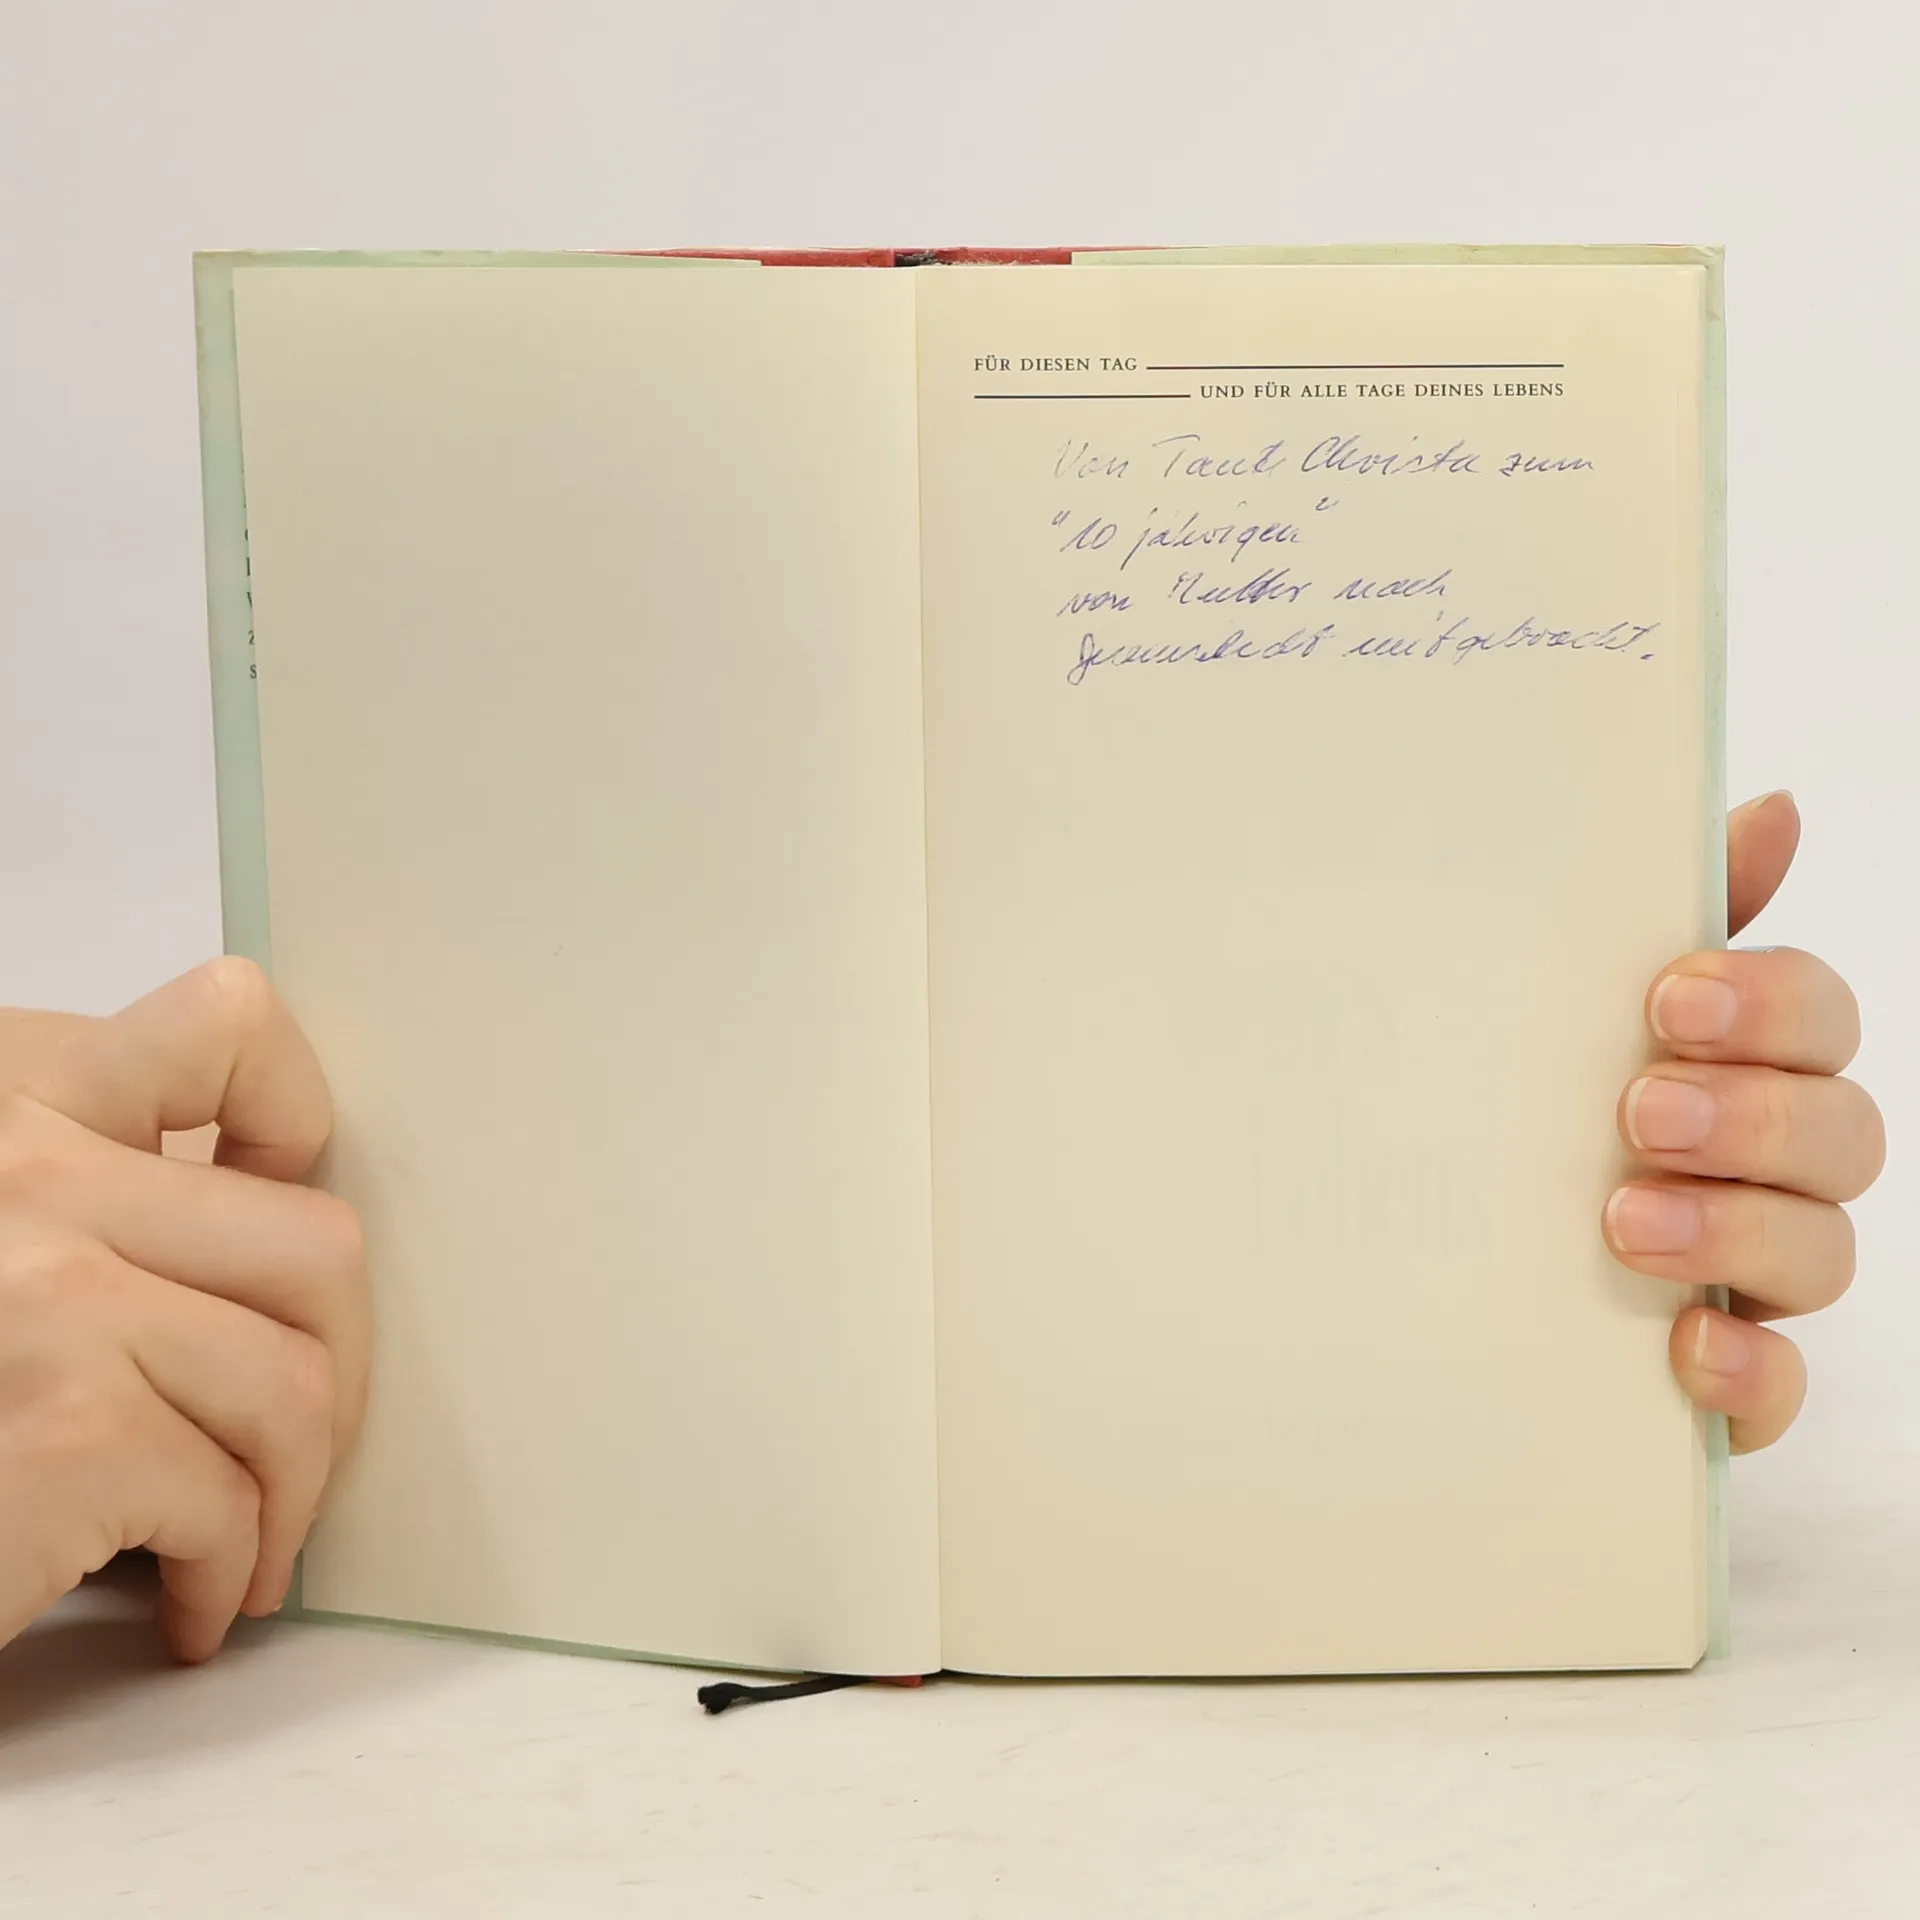 FÜR DIESEN TAG
UND FÜR ALLE TAGE DEINES LEBENS
Von Tante Christa zum
"10 jährigen"
von Mutter nach
mitgebracht.